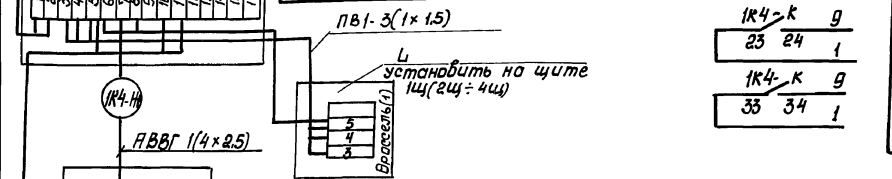 ПВ1-3(1×1.5)
L
установить на щите
1щ(2щ÷4щ)
1К4-Н
АВВГ 1(4×2.5)
5
4
3
Дроссель(1)
1К4- К 9
23 24 1
1К4- К 9
33 34 1